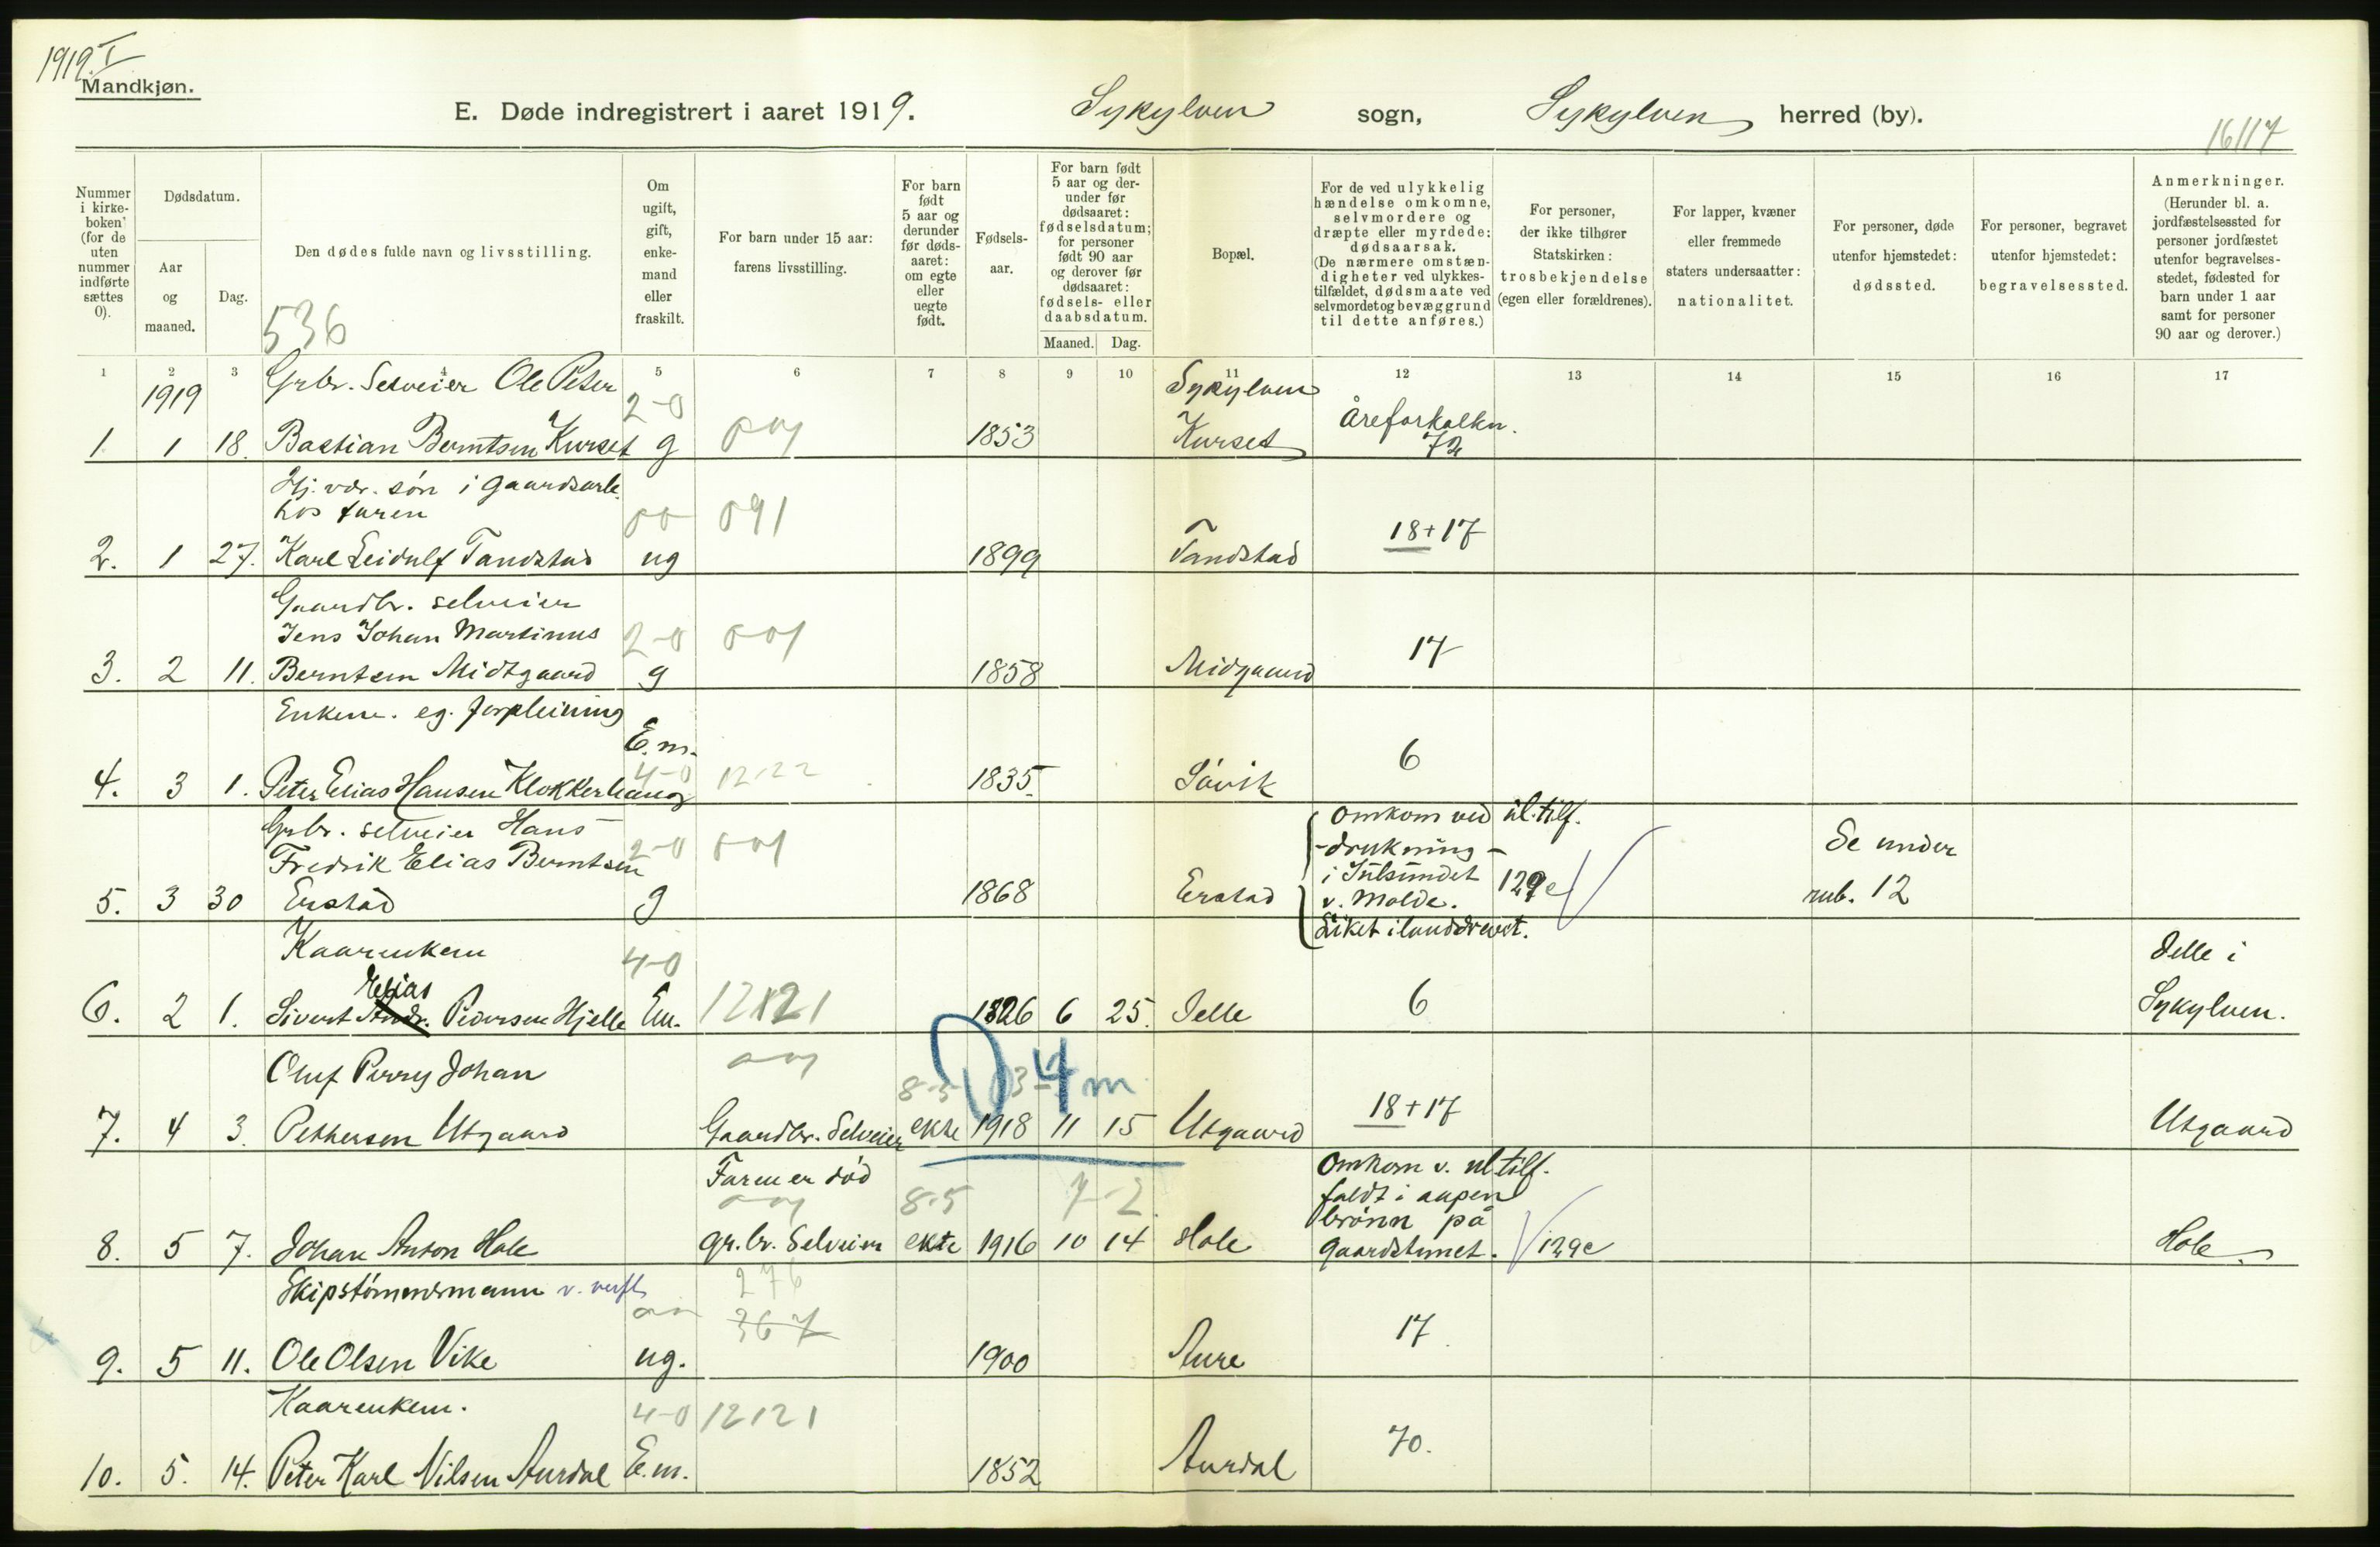 1919.I
Mandkjøn.
E. Døde indregistrert i aaret 1919. Sykylven sogn, Sykylven herred (by).
16/117
Nummer i kirkeboken (for de uten nummer indførte sættes 0).
Dødsdatum.
Aar og maaned.
Dag.
Den dødes fulde navn og livsstilling.
536
Om ugift, gift, enkemand eller fraskilt.
For barn under 15 aar: farens livsstilling.
For barn født 5 aar og derunder før dødsaaret: om egte eller uegte født.
Fødselsaar.
For barn født 5 aar og derunder før dødsaaret: fødselsdatum; for personer født 90 aar og derover før dødsaaret: fødsels- eller daabsdatum.
Maaned. Dag.
Bopæl.
For de ved ulykkelig hændelse omkomne, selvmordere og dræpte eller myrdede: dødsaarsak. (De nærmere omstændigheter ved ulykkestilfældet, dødsmaate ved selvmordet og bevæggrund til dette anføres.)
For personer, der ikke tilhører Statskirken: trosbekjendelse (egen eller forældrenes).
For lapper, kvæner eller fremmede staters undersaatter: nationalitet.
For personer, døde utenfor hjemstedet: dødssted.
For personer, begravet utenfor hjemstedet: begravelsessted.
Anmerkninger. (Herunder bl. a. jordfæstelsessted for personer jordfæstet utenfor begravelsesstedet, fødested for barn under 1 aar samt for personer 90 aar og derover.)
1 2 3 4 5 6 7 8 9 10 11 12 13 14 15 16 17
1919 Grbr. Selveier Ole Peter 2-0 Sykylven Åreforkalkn.
1. 1 18. Bastian Berntsen Kurset g 1853 Kurset 72
Hj. vær. søn i Gaardsarb.
hos faren 00 091
2. 1 27. Karl Leidulf Tandstad ug 1899 Tandstad 18+17
Gaardbr. selveier
Jens Johan Martinus 2-0
3. 2 11. Berntsen Midtgaard g 1858 Midgaard 17
Enkem. eg. forpleining
E.m.
4. 3 1. Peter Elias Hansen Klokkerhaug 4-0 1222 1835. Søvik 6
Grbr. selveier Hans omkom ved ul.tilf.
Fredrik Elias Berntsen 2-0 -drukning- Se under
i Julsundet 129e
5. 3 30 Erstad g 1868 Erstad v. Molde. rub. 12
Liket ilanddrevet.
Kaarenkem 4-0 Jelle i
Elias
6. 2 1. Sivert Andr. Pedersen Hjelle Em. 12121 1826 6 25. Jelle 6 Sykylven.
Oluf Perry Johan 8-5 3-4 4 m
7. 4 3. Petterson Utgaard Gaardbr. Selveier ekte 1918 11 15 Utgaard 18+17 Utgaard
Faren er død 8-5 7-2 Omkom v. ul tilf.
faldt i aapen
brønn på
8. 5 7. Johan Anton Hole gr.br. Selveier ekte 1916 10 14 Hole gaardstunet. 129e Hole
Skipstømmermann v. verft 276
367
9. 5 11. Ole Olsen Vike ug. 1900 Aure 17
Kaarenkem. 4-0 12121
10. 5. 14. Peter Karl Nilsen Aurdal E.m. 1852 Aurdal 70.